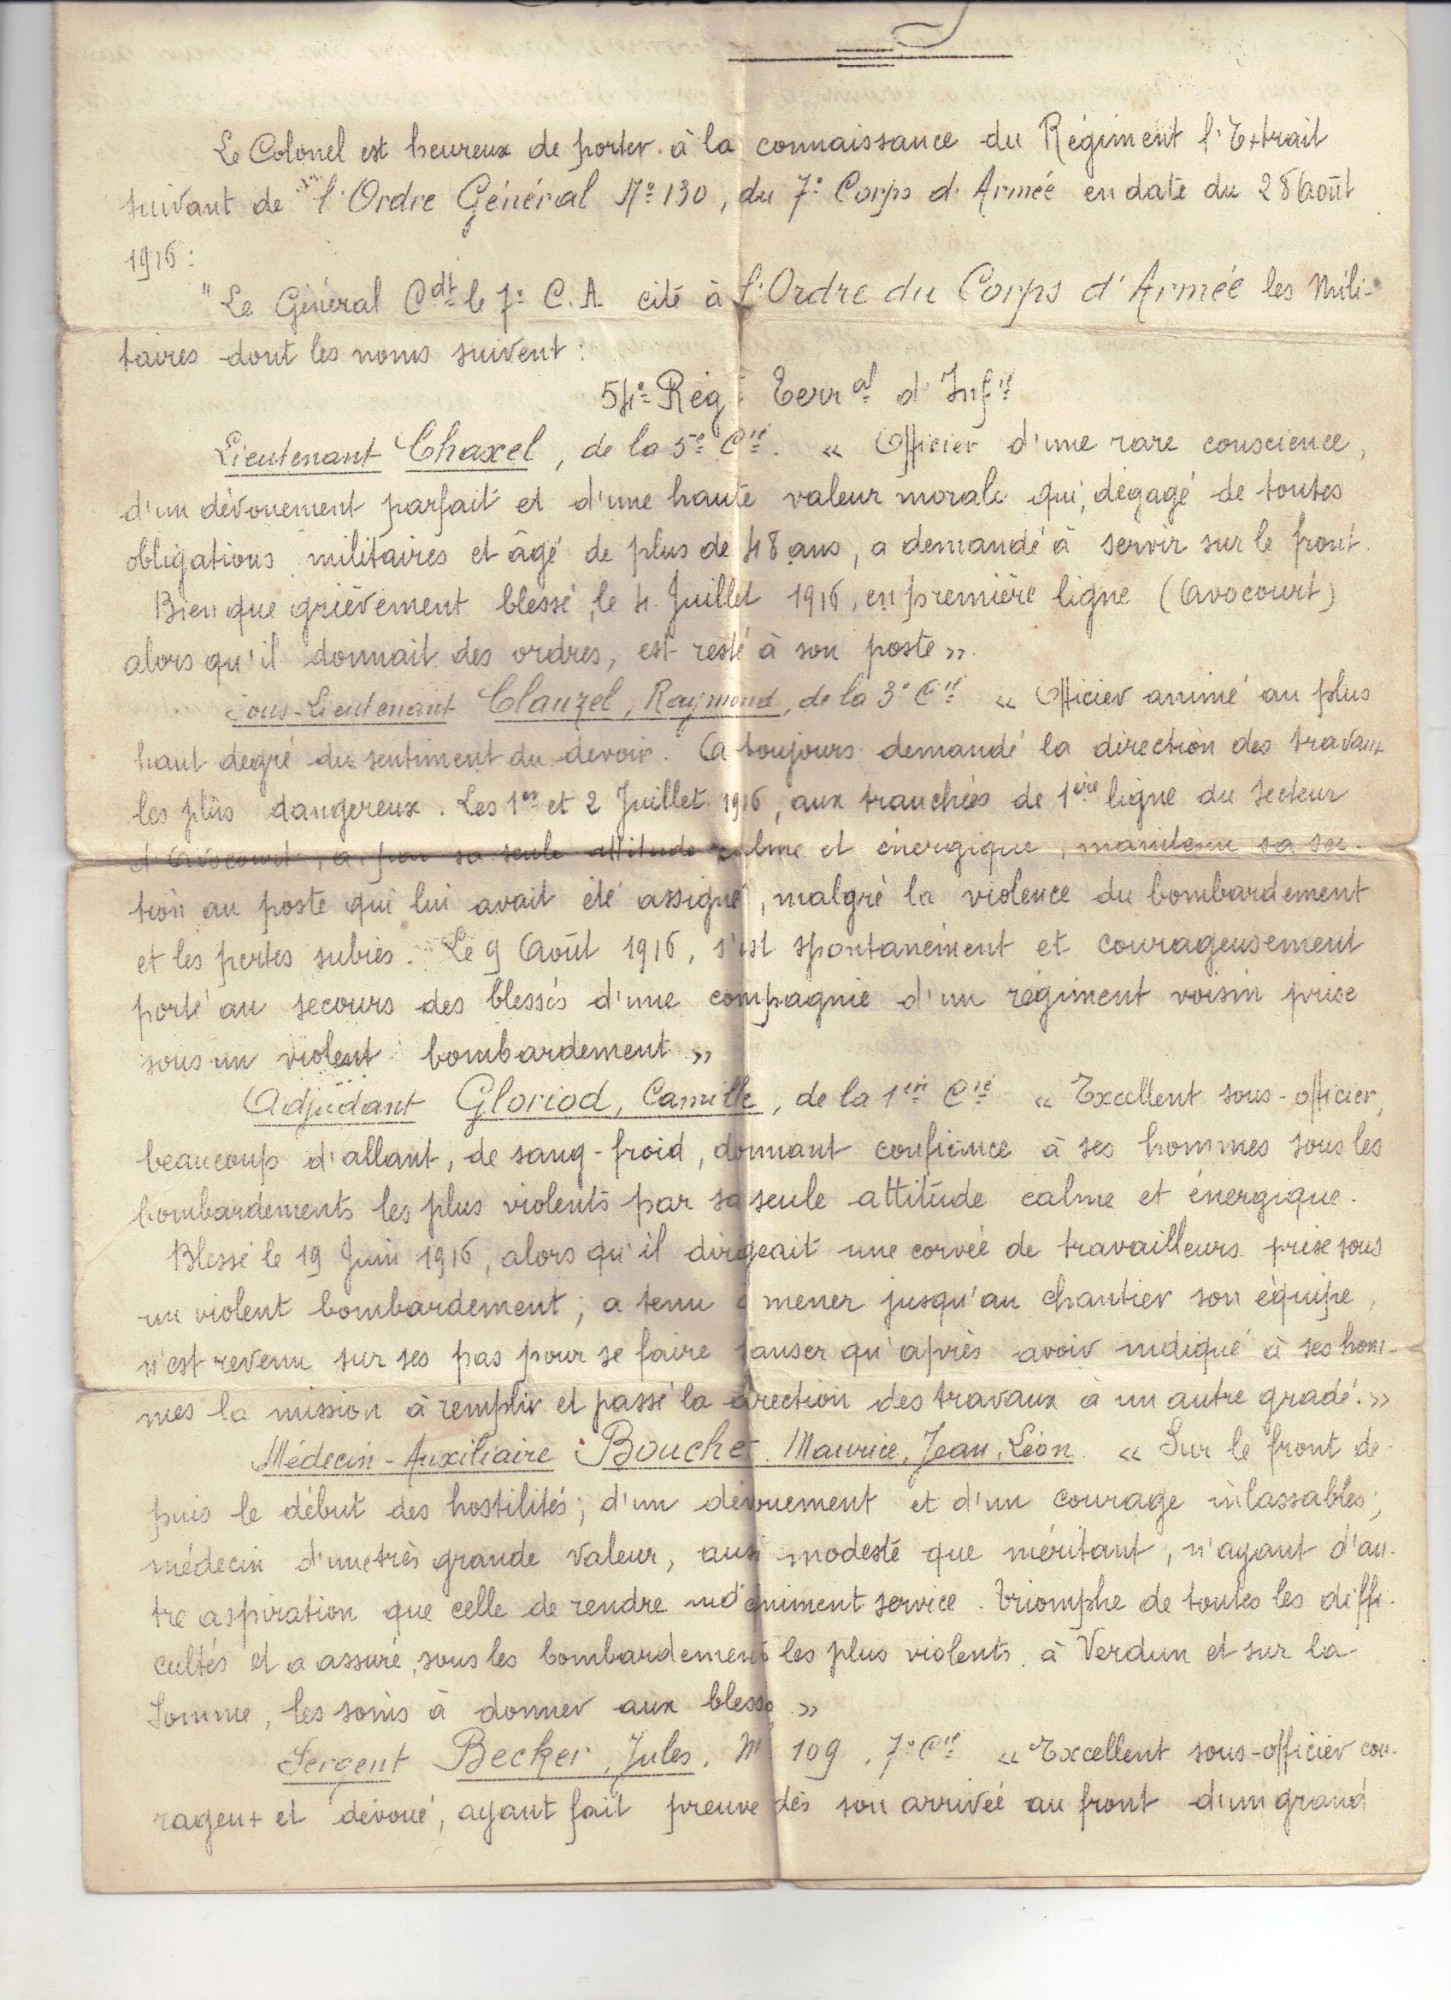 Le Colonel est heureux de porter à la connaissance du Régiment l'Extrait
suivant de l'Ordre Général Nº 130, du 7º Corps d'Armée en date du 28 Août
1916 :
"Le Général Cdt le 7º C.A. cite à l'Ordre du Corps d'Armée les Mili-
taires dont les noms suivent :
54º Rég. Terral d'Infie
Lieutenant Chaxel, de la 5e Cie. « Officier d'une rare conscience,
d'un dévouement parfait et d'une haute valeur morale qui, dégagé de toutes
obligations militaires et âgé de plus de 48 ans, a demandé à servir sur le front.
Bien que grièvement blessé, le 4 Juillet 1916, en première ligne (Avocourt)
alors qu'il donnait des ordres, est resté à son poste ».
Sous-Lieutenant Clauzel, Raymond, de la 3º Cie « Officier animé au plus
haut degré du sentiment du devoir. A toujours demandé la direction des travaux
les plus dangereux. Les 1er et 2 Juillet 1916, aux tranchées de 1ère ligne du Secteur
d'Avocourt, a, par sa seule attitude calme et énergique, maintenu sa sec-
tion au poste qui lui avait été assigné, malgré la violence du bombardement
et les pertes subies. Le 9 Août 1916, s'est spontanément et courageusement
porté au secours des blessés d'une compagnie d'un régiment voisin prise
sous un violent bombardement »
Adjudant Gloriod, Camille, de la 1ère Cie « Excellent sous-officier,
beaucoup d'allant, de sang-froid, donnant confiance à ses hommes sous les
bombardements les plus violents par sa seule attitude calme et énergique.
Blessé le 19 Juin 1916, alors qu'il dirigeait une corvée de travailleurs prise sous
un violent bombardement ; a tenu à mener jusqu'au chantier son équipe,
n'est revenu sur ses pas pour se faire panser qu'après avoir indiqué à ses hom-
mes la mission à remplir et passé la direction des travaux à un autre gradé. »
Médecin-Auxiliaire Bouchet, Maurice, Jean, Léon. « Sur le front de-
puis le début des hostilités ; d'un dévouement et d'un courage inlassables ;
médecin d'une très grande valeur, aussi modeste que méritant, n'ayant d'au-
tre aspiration que celle de rendre service. Triomphe de toutes les diffi-
cultés et a assuré, sous les bombardements les plus violents, à Verdun et sur la
Somme, les soins à donner aux blessés »
Sergent Becker, Jules, Mle 109, 7º Cie « Excellent sous-officier cou-
rageux et dévoué, ayant fait preuve dès son arrivée au front d'un grand